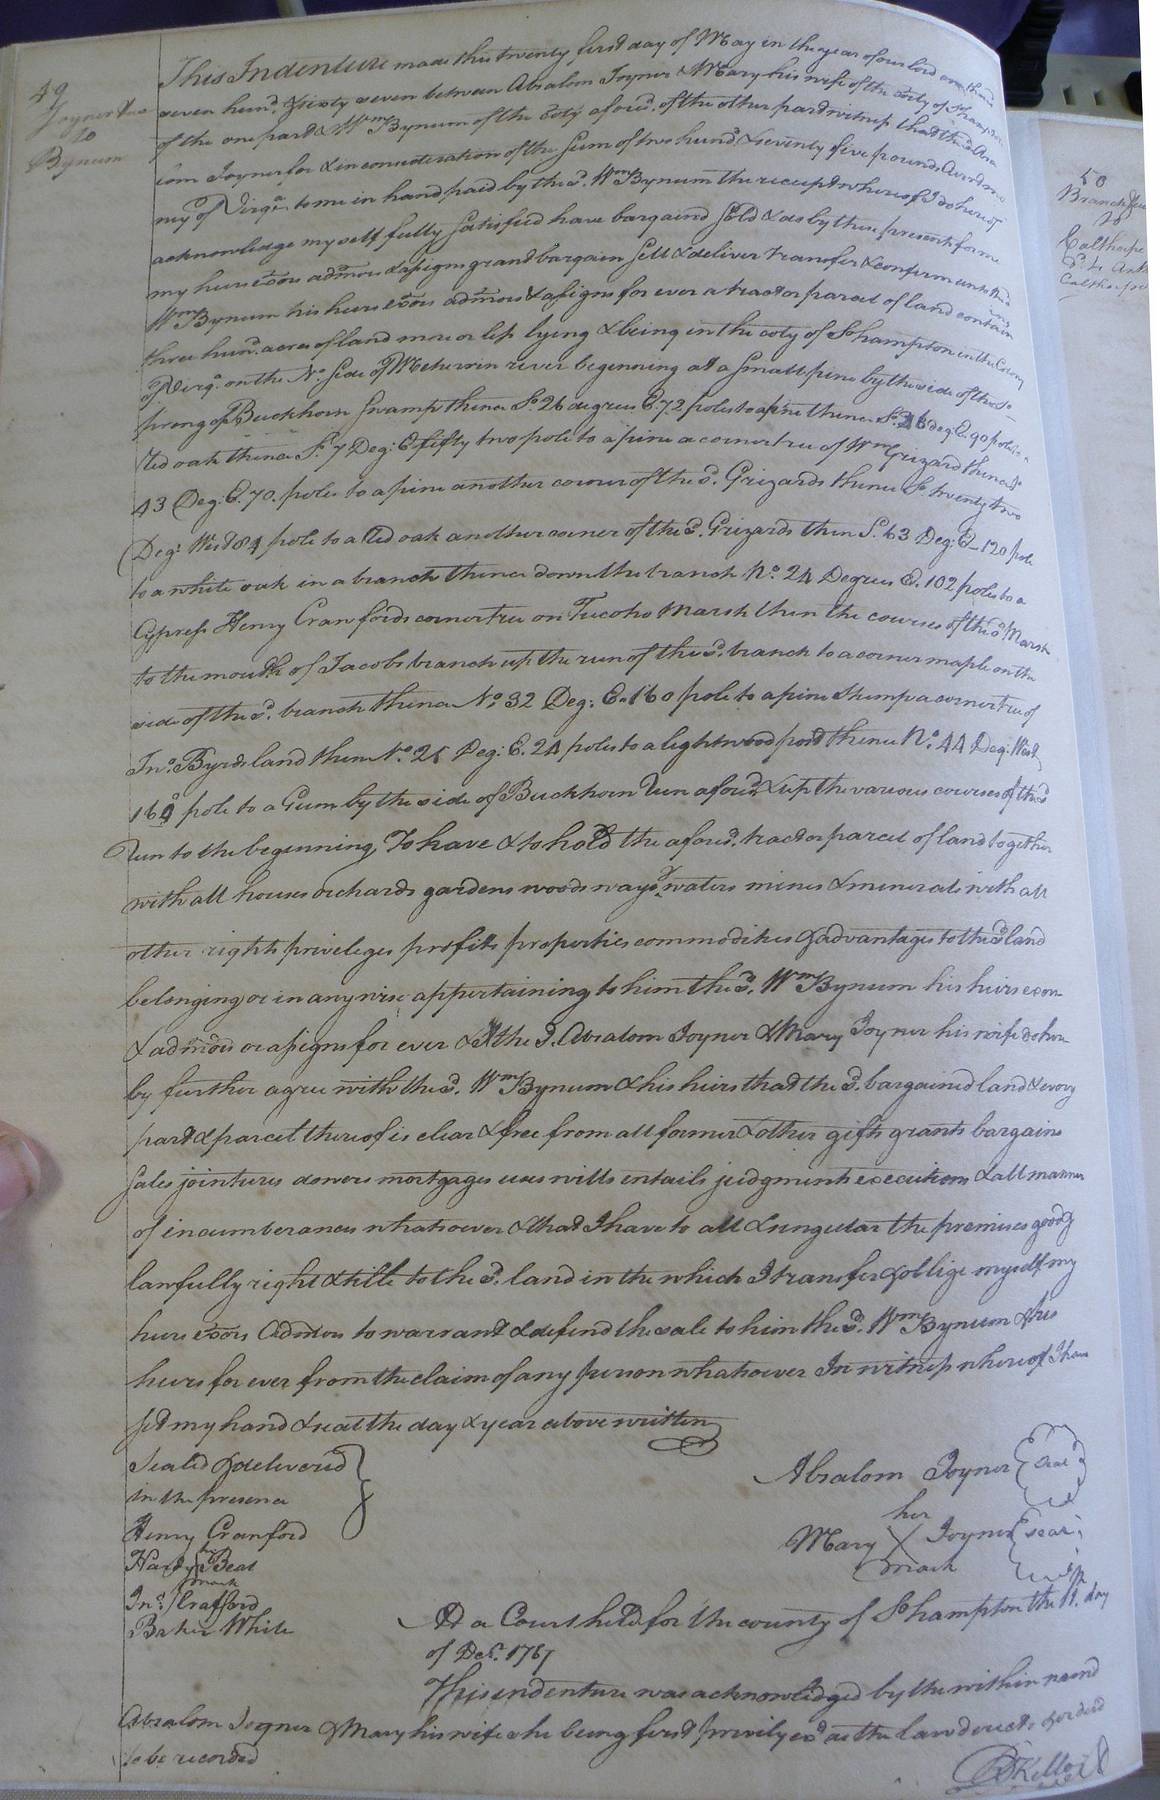 49
Joyner &ux
to
Bynum
This Indenture made this twenty first day of May in the year of our lord one thous
seven hund. & sixty seven between Absalom Joyner & Mary his wife of the coty of Sohampton
of the one part & Wm Bynum of the coty afores.d of the other part witness that the sd Absa
lom Joyner for & in consideration of the sum of two hund.d & seventy five pounds Curr.t mo
ny of Virga. to me in hand paid by the sd. Wm Bynum the receipt whereof I do hereof
acknowledge myself fully satisfied have bargaind sold & do by these presents for me
my heirs exors admors & assigns grant bargain sell & deliver transfer & confirm unto the sd
Wm Bynum his heirs exors admors & assigns for ever a tract or parcel of land containing
three hund. acres of land more or less lying & being in the coty of Sohampton in the Colony
of Virga. on the No. side of Meherrin river beginning at a small pine by the side of the So.
prong of Buckhorn Swamp thence So. 26 degrees E. 72 poles to a pine thence So. 26 deg. E. 90 poles to a
red oak thence So. 7 Deg: E fifty two pole to a pine a corner tree of Wm Grizard thence So
43 Deg: E. 70. poles to a pine another corner of the sd. Grizards thence So. twenty two
Deg: West 84 pole to a Red oak another corner of the sd. Grizards then S. 63 Deg: E 120 pole
to a white oak in a branch thence down the branch No. 24 Degrees E. 102 poles to a
Cypress Henry Cranfords corner tree on Tucoho Marsh then the courses of the sd Marsh
to the mouth of Jacobs branch up the run of the sd. branch to a corner maple on the
side of the sd. branch thence No 32 Deg: E. 160 pole to a pine Stump a corner tree of
Jno. Byrds land then No. 25 Deg: E. 24 poles to a lightwood post thence No. 44 Deg: West
160 pole to a Gum by the side of Buckhorn Run afores.d & up the various courses of the sd
Run to the beginning To have & to hold the afores.d tract or parcel of land together
with all houses orchards gardens woods ways & waters mines & minerals with all
other rights priveleges profits properties commodities & advantages to the sd land
belonging or in any wise appertaining to him the sd. Wm Bynum his heirs exors
& admors or assigns for ever & I the sd. Absalom Joyner & Mary Joyner his wife do here
by further agree with the sd. Wm Bynum & his heirs that the sd. bargained land & every
part & parcel thereof is clear & free from all former & other gifts grants bargains
sales jointures dowers mortgages uses wills entails judgments executions & all manner
of incumberances whatsoever & that I have to all & singular the premises good &
lawfully right & title to the sd. land in the which I transfer & oblige myself my
heirs exors Admors to warrant & defend the sale to him the sd. Wm Bynum & his
heirs for ever from the claim of any person whatsoever In witness whereof I have
set my hand & seal the day & year above written
Sealed & delivered
in the presence
Henry Cranford
Hardy his Beal
mark
Jno. Crafford
Baker White
Absalom Joyner Seal
her
Mary X Joyner seal
mark
At a Court held for the county of Sohampton the day
of Decr. 1767
This indenture was acknowledged by the within named
Absalom Joyner & Mary his wife she being first privily exd as the law directs & ordered
to be recorded
50
Branch &ux
to
Calthorpe
Calthorpe